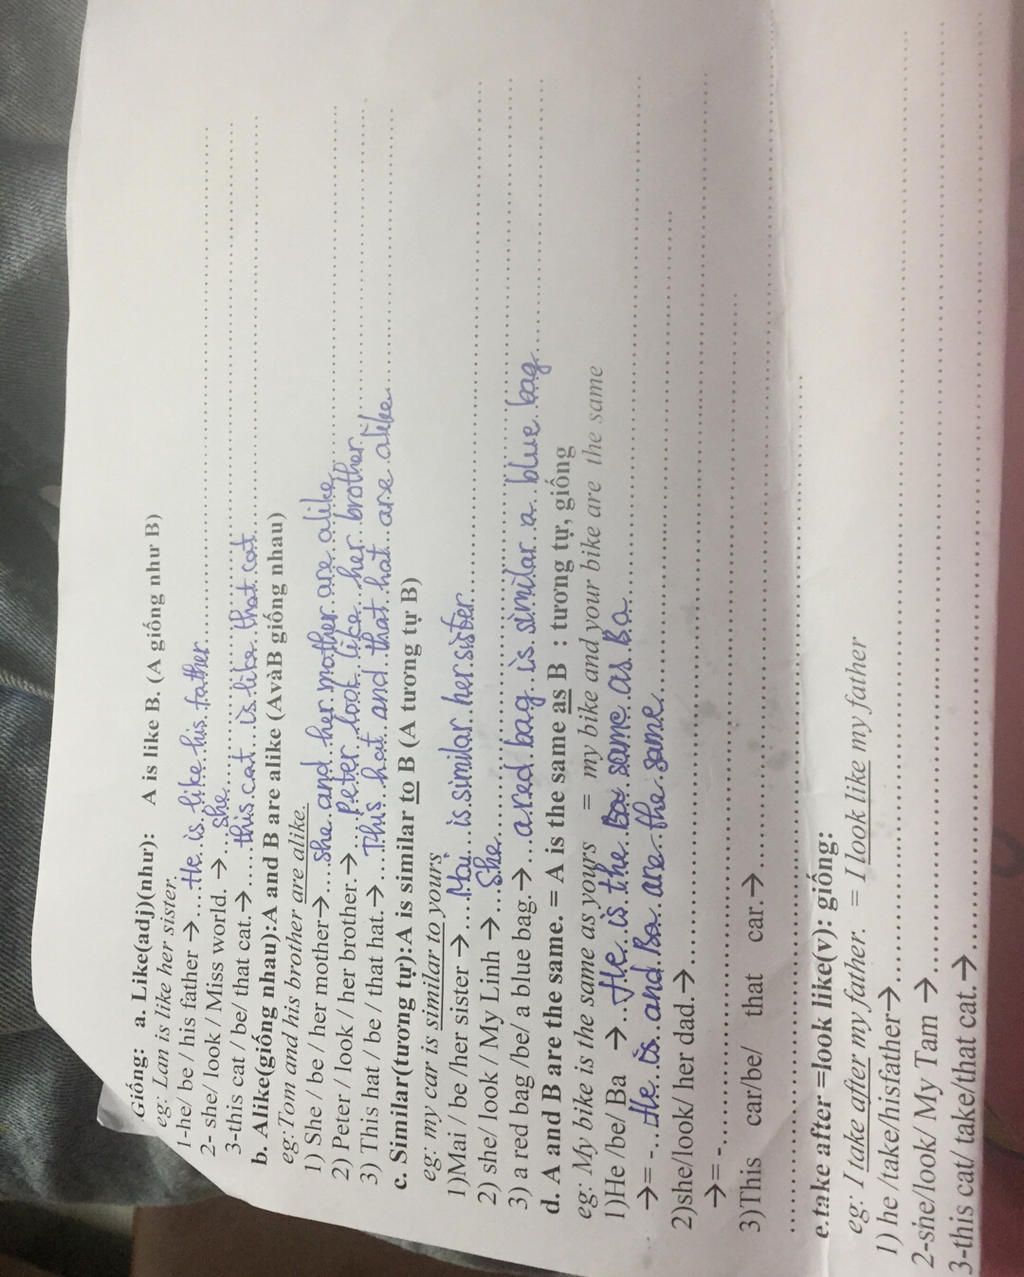 Giống: a. Like(adj)(như): A is like B. (A giống như B)
eg: Lan is like her sister.
1-he/ be / his father → He is like his father
2- she/ look / Miss world. → she
3-this cat / be/ that cat. → this cat is like that cat
b. Alike(giống nhau):A and B are alike (AvàB giống nhau)
eg:Tom and his brother are alike.
1) She / be / her mother→ she and her mother are alike
2) Peter / look / her brother. → Peter look like her brother
3) This hat / be / that hat. → This hat and that hat are alike
c. Similar(tương tự):A is similar to B (A tương tự B)
eg: my car is similar to yours
1)Mai / be /her sister → May is similar her sister
2) she/ look / My Linh → She
3) a red bag /be/ a blue bag.→ a red bag is similar a blue bag
d. A and B are the same. = A is the same as B : tương tự, giống
eg: My bike is the same as yours = my bike and your bike are the same
1)He /be/ Ba → He is the same as Ba
→= - He is and Ba are the same
2)she/look/ her dad.→
→= -
3)This car/be/ that car.→
e.take after =look like(v): giống:
eg: I take after my father. = I look like my father
1) he /take/hisfather→
2-she/look/ My Tam →
3-this cat/ take/that cat. →